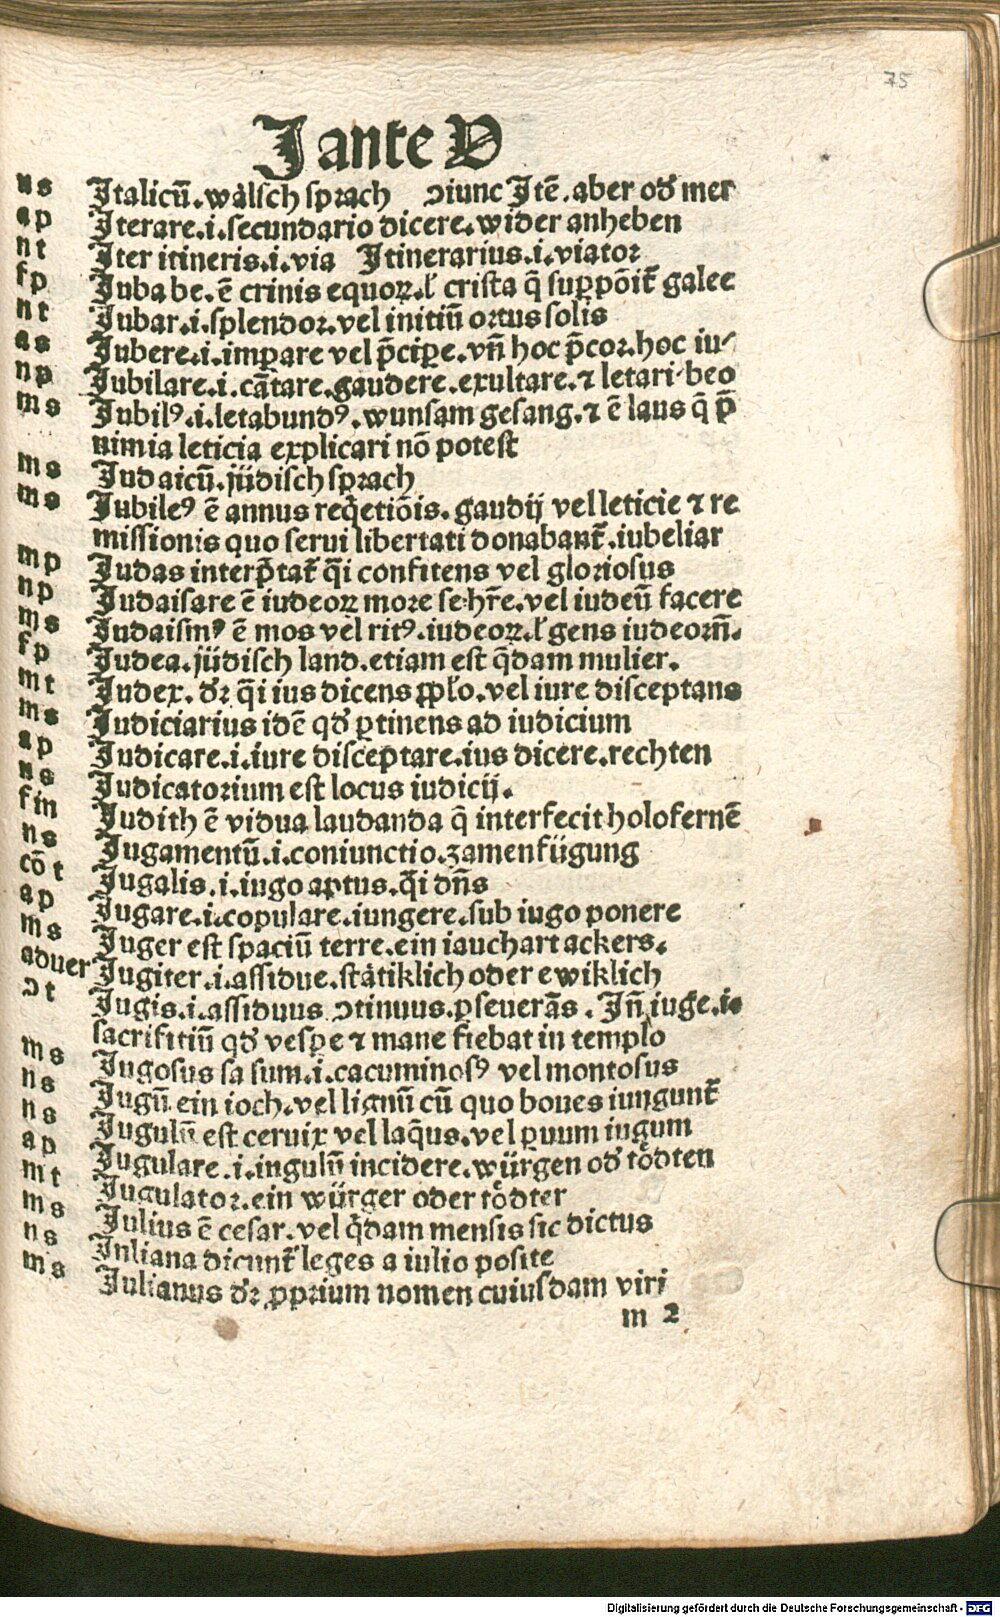 75
J ante V
ns Italicū. wälsch sprach ɔiunc Itē. aber oď mer
ap Iterare .i. secundario dicere. wider anheben
nt Iter itineris .i. via Itinerarius .i. viator
fp Iuba be. ē crinis equoꝝ. ł crista q̄ suppōit̄ galee
nt Iubar .i. splendor. vel initiū ortus solis
as Iubere .i. imꝑare vel p̄ciꝑe. vn̄ hoc p̄cor. hoc iu⸗
np Iubilare .i. cātare. gaudere. exultare. ⁊ letari beo
ms Iubilꝰ .i. letabundꝰ. wunsam gesang. ⁊ ē laus q̄ p̄
nimia leticia explicari nō potest
ms Iudaicū. jüdisch sprach
ms Iubileꝰ ē annus req̄etiōis. gaudij vel leticie ⁊ re
missionis quo serui libertati donabant̄. iubeliar
mp Iudas interp̄tat̄ q̄i confitens vel gloriosus
np Iudaisare ē iudeoꝝ more se hr̄e. vel iudeū facere
ms Iudaismꝰ ē mos vel ritꝰ. iudeoꝝ. ł gens iudeorū.
fp Iudea. jüdisch land. etiam est q̄dam mulier.
mt Iudex. dr̄ q̄i ius dicens ꝓpło. vel iure disceptans
ms Iudiciarius idē qď ꝑtinens ad iudicium
ap Iudicare .i. iure disceptare. ius dicere. rechten
ns Iudicatorium est locus iudicij.
fin Iudith ē vidua laudanda q̄ interfecit holofernē
ns Iugamentū .i. coniunctio. zamenfügung
cōt Iugalis .i. iugo aptus. q̄i dn̄s
ap Iugare .i. copulare. iungere. sub iugo ponere
ms Iuger est spaciū terre. ein iauchart ackers.
aduer Iugiter .i. assidue. stätiklich oder ewiklich
ɔt Iugis .i. assiduus ɔtinuus. ꝑseuerās. In̄ iuge .i.
sacrifitiū qď vesꝑe ⁊ mane fiebat in templo
ms Iugosus sa sum .i. cacuminosꝰ vel montosus
ns Iugū ein ioch. vel lignū cū quo boues iungunt̄
ns Iugulū est ceruix vel laq̄us. vel ꝑuum iugum
ap Iugulare .i. iugulū incidere. würgen oď tödten
mt Iugulator. ein würger oder tödter
ms Iulius ē cesar. vel q̄dam mensis sic dictus
ns Iuliana dicunt̄ leges a iulio posite
ms Iulianus dr̄ ꝓprium nomen cuiusdam viri
m 2
Digitalisierung gefördert durch die Deutsche Forschungsgemeinschaft - DFG